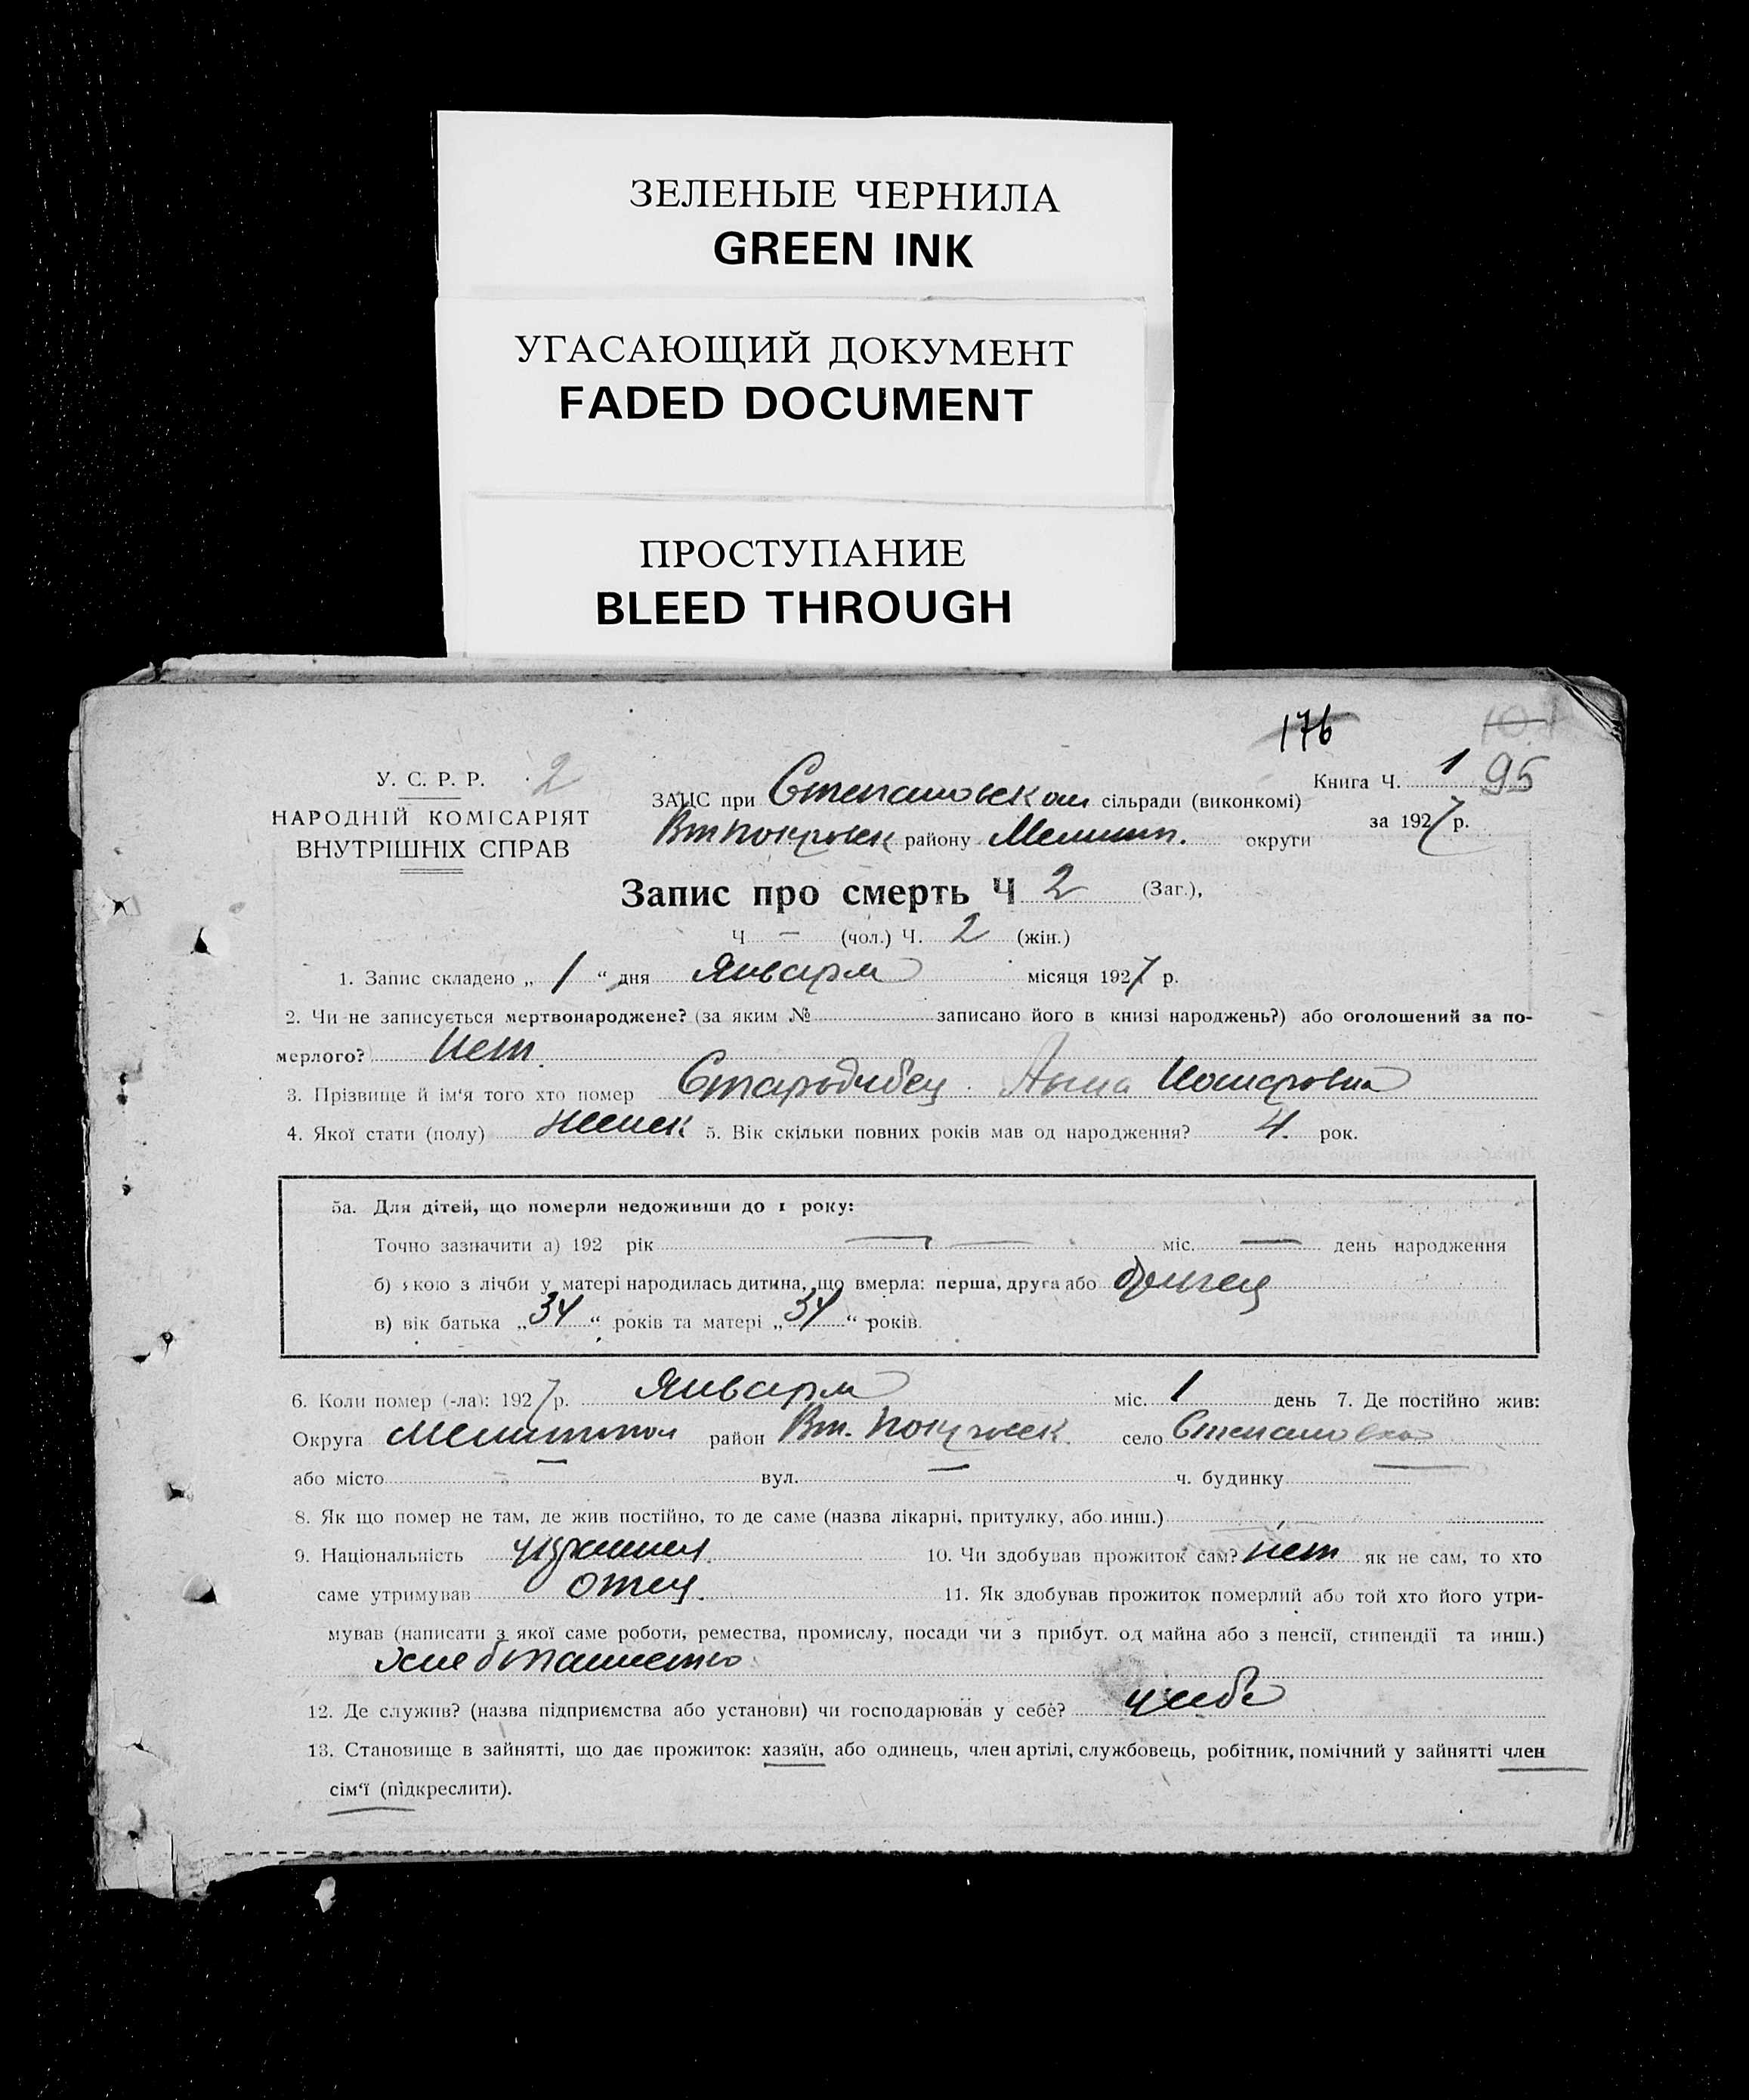 ЗЕЛЕНЫЕ ЧЕРНИЛА
GREEN INK
УГАСАЮЩИЙ ДОКУМЕНТ
FADED DOCUMENT
ПРОСТУПАНИЕ
BLEED THROUGH
176
У. С. Р. Р. 2
НАРОДНІЙ КОМІСАРІЯТ
ВНУТРІШНІХ СПРАВ
ЗАЦС при Степановском сільради (виконкомі)
Вт Покровск району Мелитоп. округи
Книга Ч. 1 95
за 1927 р.
Запис про смерть Ч 2 (Заг.),
Ч — (чол.) Ч. 2 (жін.)
1. Запис складено „ 1 “ дня Января місяця 1927 р.
2. Чи не записується мертвонароджене? (за яким № записано його в книзі народжень?) або оголошений за по-
мерлого? Нет.
3. Прізвище й ім‘я того хто помер Анна
4. Якої стати (полу) женск 5. Вік скільки повних років мав од народження? 4. рок.
5а. Для дітей, що померли недоживши до 1 року:
Точно зазначити а) 192 рік — — міс. — день народження
б) якою з лічби у матері народилась дитина, що вмерла: перша, друга або
в) вік батька „ 34 “ років та матері „ 34 “ років.
6. Коли помер (-ла): 1927 р. Января міс. 1 день 7. Де постійно жив:
Округа Мелитопол район Вт. Покровск село Степановка
або місто — вул. — ч. будинку —
8. Як що помер не там, де жив постійно, то де саме (назва лікарні, притулку, або инш.)
9. Національність 10. Чи здобував прожиток сам? нет як не сам, то хто
саме утримував отец. 11. Як здобував прожиток померлий або той хто його утри-
мував (написати з якої саме роботи, ремества, промислу, посади чи з прибут. од майна або з пенсії, стипендії та инш.)
хлебопашество
12. Де служив? (назва підприємства або установи) чи господарював у себе? у себе
13. Становище в зайнятті, що дає прожиток: хазяїн, або одинець, член артілі, службовець, робітник, помічний у зайнятті член
сім‘ї (підкреслити).